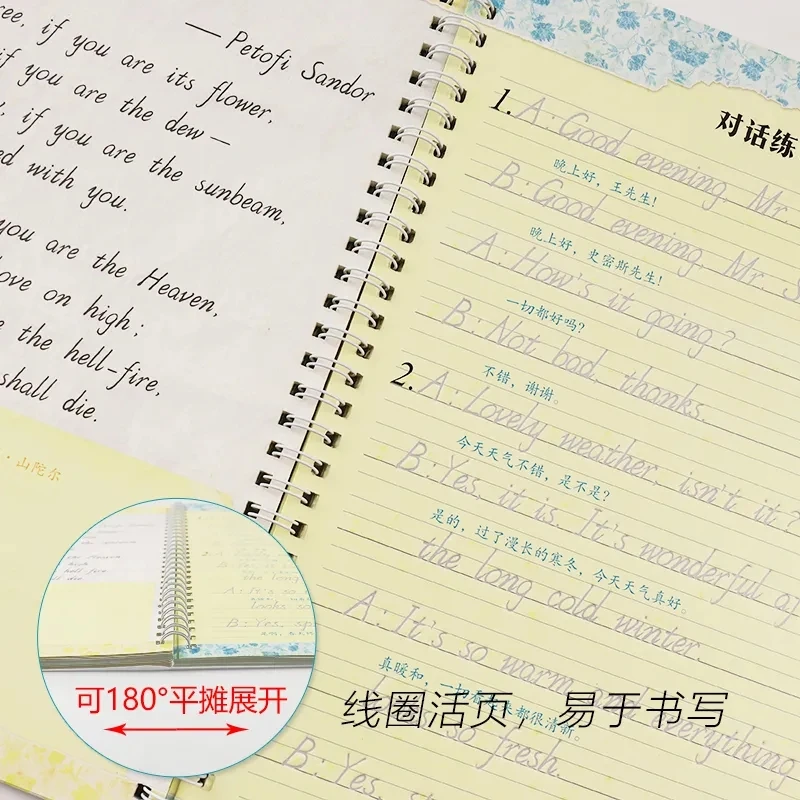 — Petofi Sandor
if you are its flower,
if you are the dew—
if you are the sunbeam,
with you.
you are the Heaven,
love on high;
the hell-fire,
shall die.
·山陀尔
对话练
1. A: Good evening, Mr.
晚上好，王先生!
B: Good evening, Mr. S
晚上好，史密斯先生!
A: How's it going?
一切都好吗?
B: Not bad, thanks.
不错，谢谢。
2. A: Lovely weather, isn't it?
今天天气不错，是不是?
B: Yes, it is. It's wonderful
是的，过了漫长的寒冬，今天天气真好。
the long cold winter.
A: It's so warm, everything
真暖和，一切看起来都很清新。
so fresh.
B: Yes,
可180°平摊展开
线圈活页，易于书写